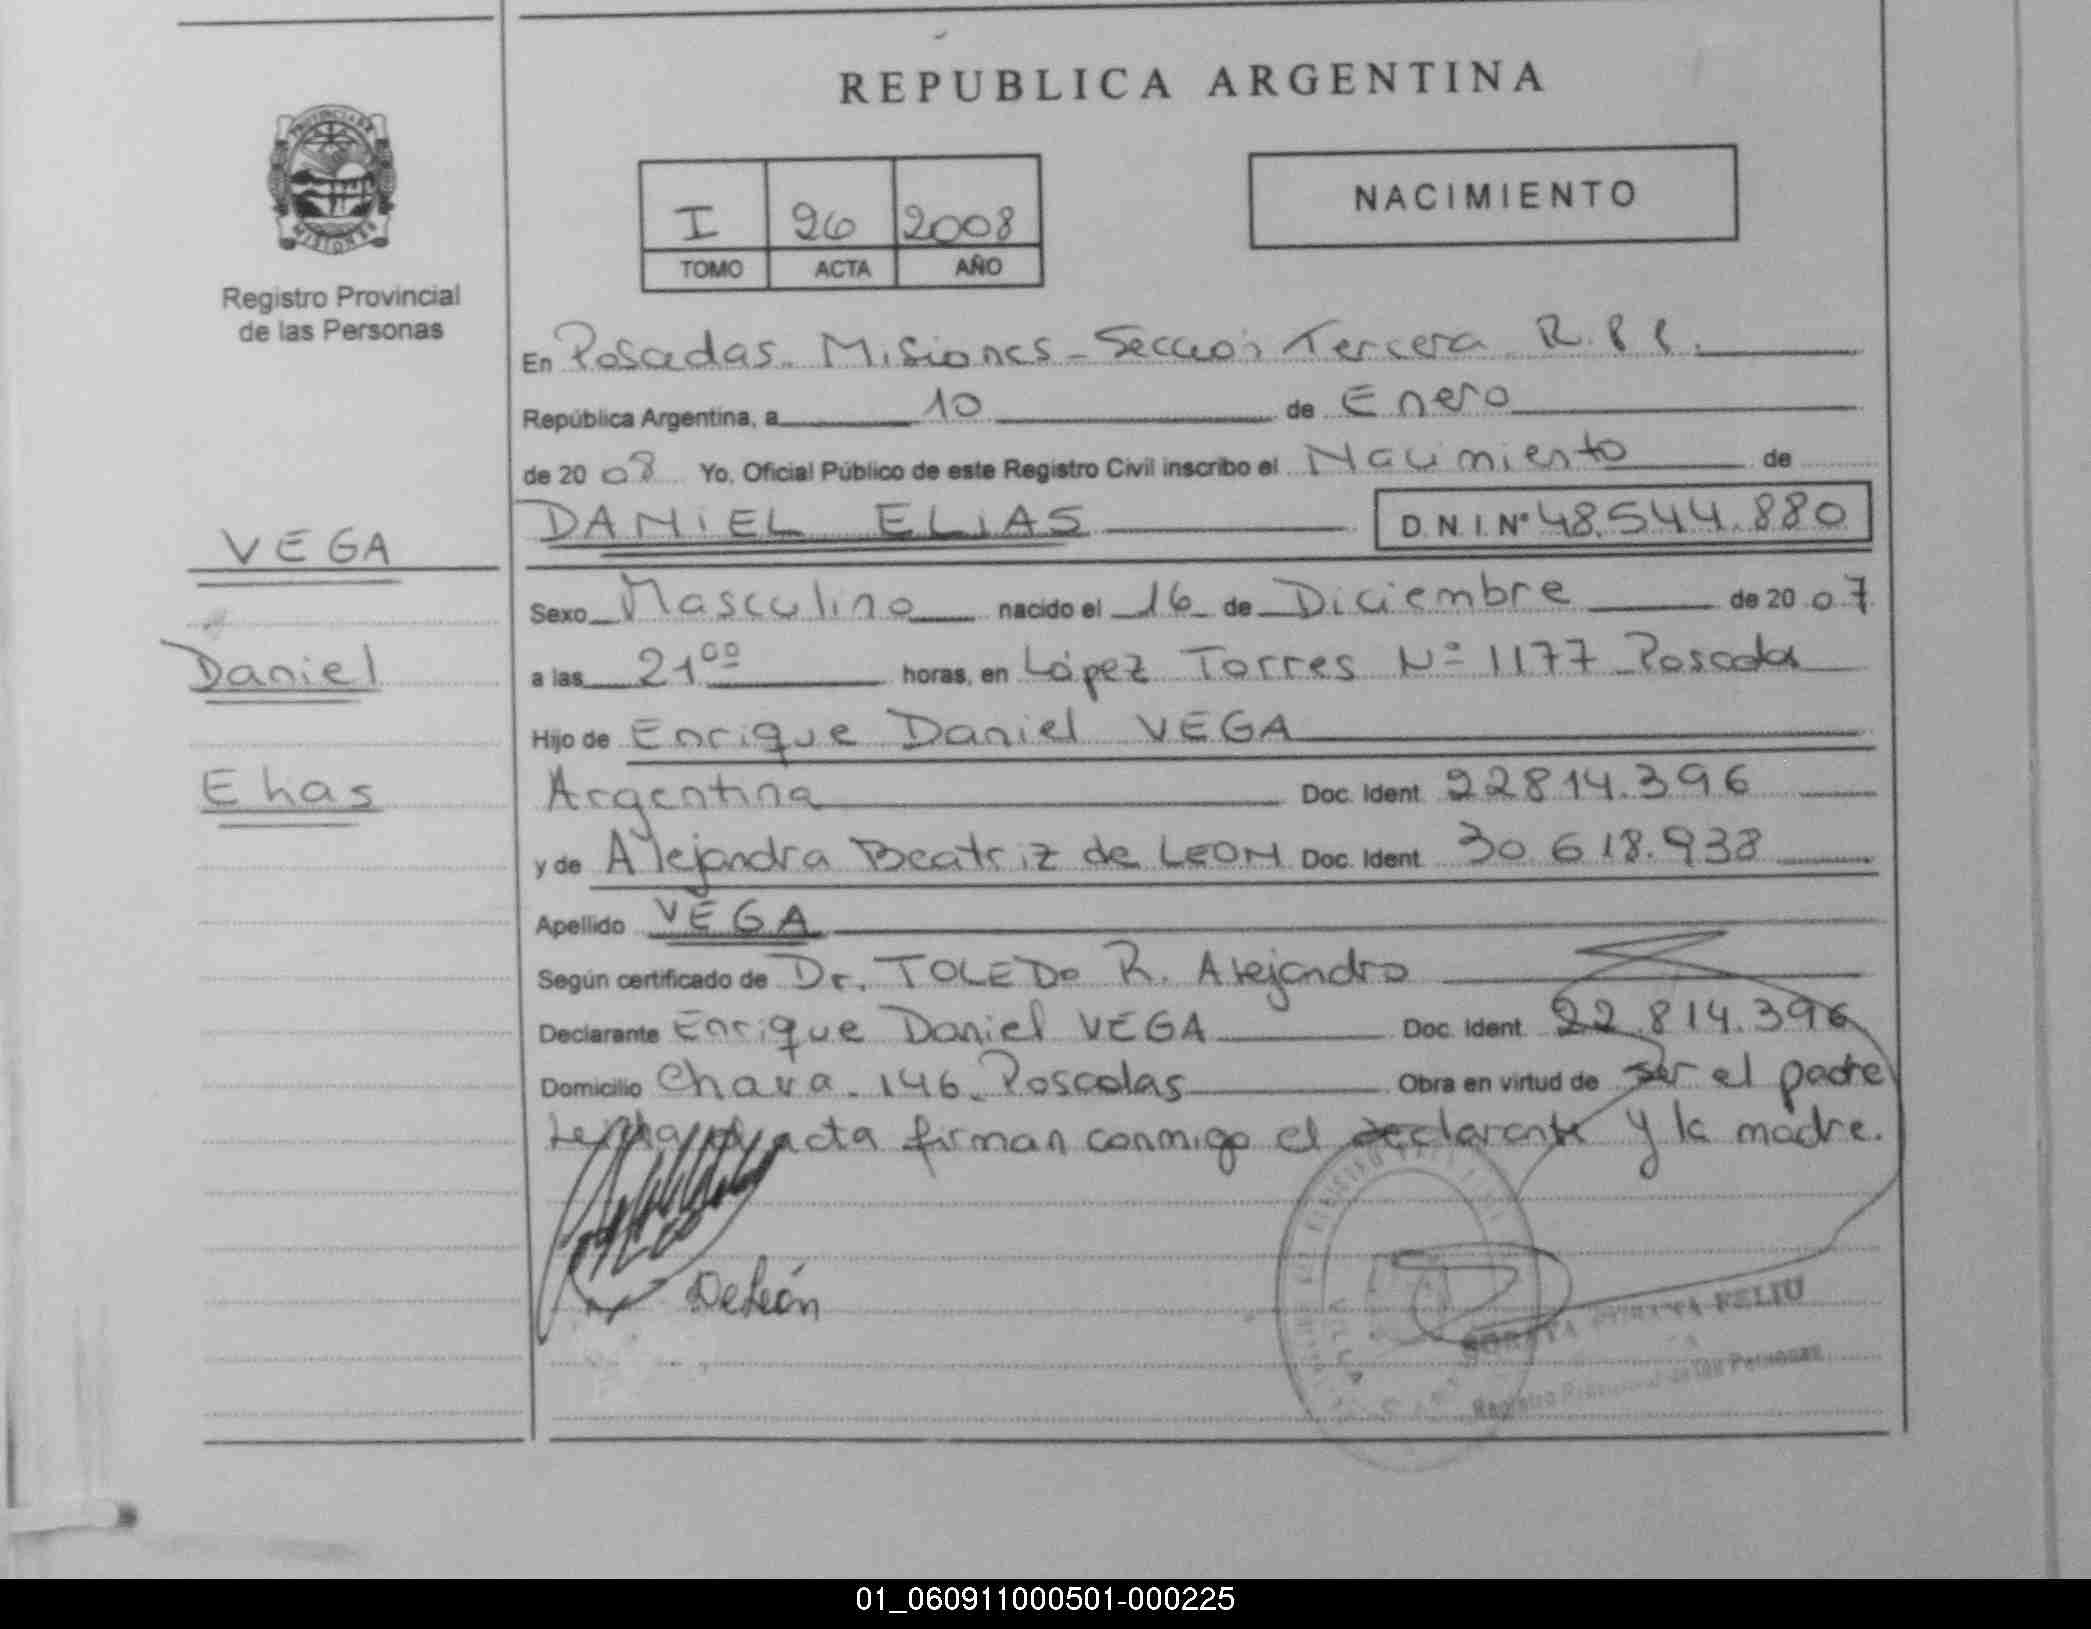 REPUBLICA ARGENTINA
PROVINCIA DE
MISIONES
Registro Provincial
de las Personas
I 26 2008
TOMO ACTA AÑO
NACIMIENTO
En Posadas. Misiones - Sección Tercera R.P.P.
República Argentina, a 10 de Enero
de 20 08 Yo, Oficial Público de este Registro Civil inscribo el Nacimiento de
DANIEL ELIAS D.N.I. Nº 48.544.880
VEGA
Daniel
Elias
Sexo Masculino nacido el 16 de Diciembre de 20 07
a las 21 00 horas, en López Torres Nº 1177 Posadas
Hijo de Enrique Daniel VEGA
Argentina Doc. Ident. 22814.396
y de Alejandra Beatriz de LEON Doc. Ident. 30.618.938
Apellido VEGA
Según certificado de Dr. TOLEDO R. Alejandro
Declarante Enrique Daniel VEGA Doc. Ident. 22.814.396
Domicilio 146. Posadas Obra en virtud de ser el padre
acta firman conmigo el declarante y la madre.
DeLeón
FELIU
Registro Provincial de las Personas
01_060911000501-000225